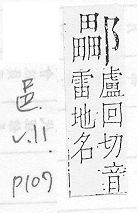 盧回切音
雷地名
邑
v.11
p107